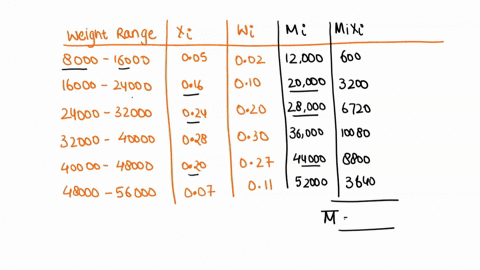 Weight Range Xi Wi Mi MiXi
8000 - 16000 0.05 0.02 12,000 600
16000 - 24000 0.16 0.10 20,000 3200
24000 - 32000 0.24 0.20 28,000 6720
32000 - 40000 0.28 0.30 36,000 10080
40000 - 48000 0.20 0.27 44000 8800
48000 - 56000 0.07 0.11 52000 3640
M̅ -